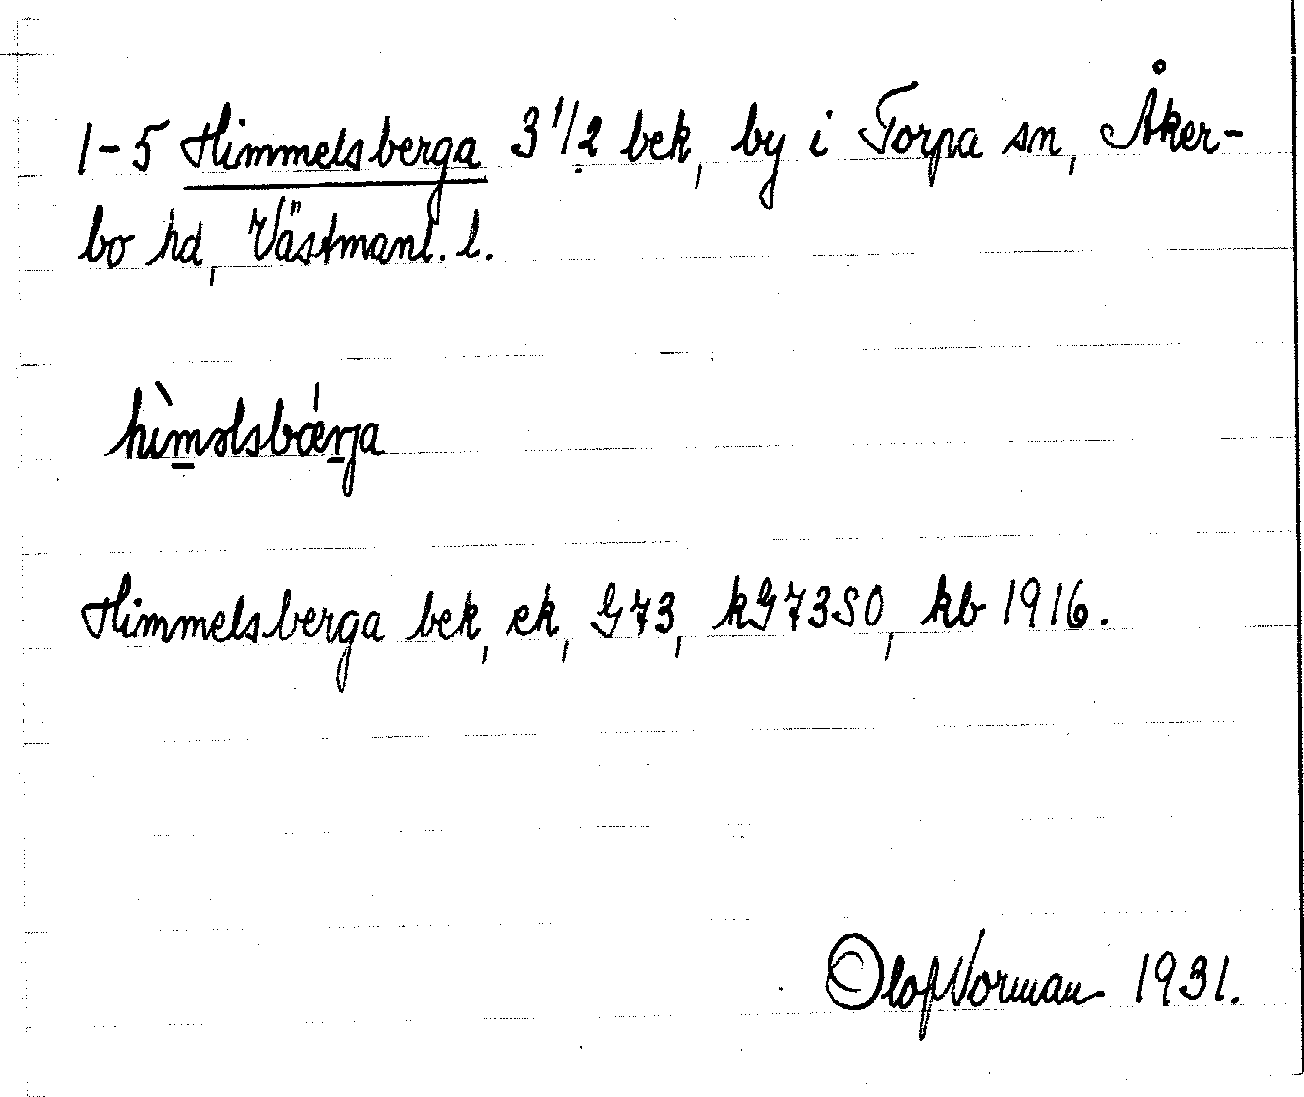 1-5 Himmelsberga 3 1/2 bek, by i Torpa sn, Åker-
bo hd, Västmanl. l.
hìməlsbǽrja
Himmelsberga bek, ek, G73, kG73SO, kb 1916.
Olof Norman 1931.